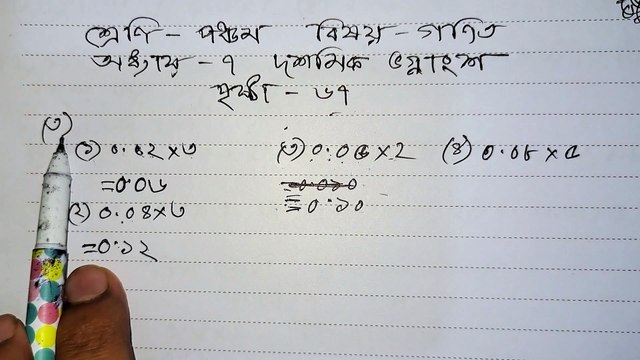 শ্রেণি - পঞ্চম বিষয় - গণিত
অধ্যায় - ৭ দশমিক ভগ্নাংশ
পৃষ্ঠা - ৬৭
(৩)
(১) ০.০২ × ৩ (৩) ০.০৫ × 2 (৪) ০.০৮ × ৫
= ০.০৬ = ০.০১০
(২) ০.০৪ × ৩ = ০.১০
= ০.১২